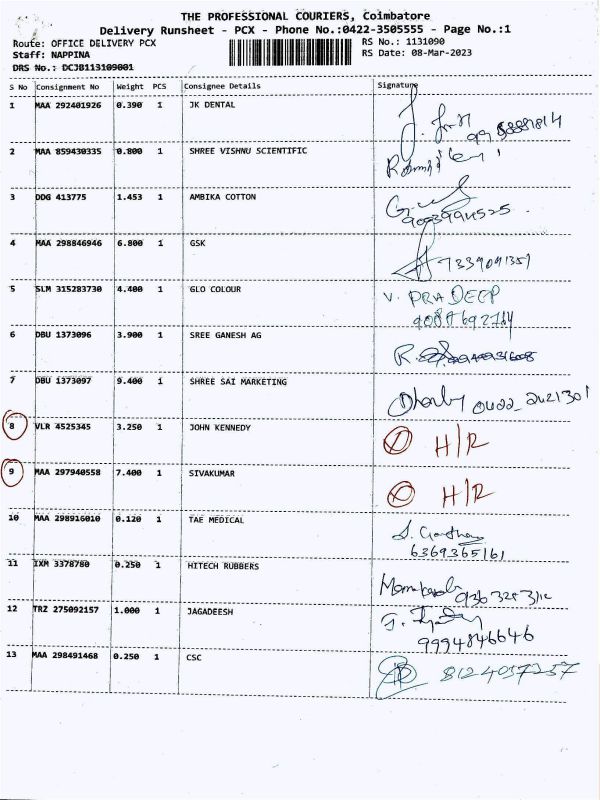 THE PROFESSIONAL COURIERS, Coimbatore
Delivery Runsheet - PCX - Phone No.:0422-3505555 - Page No.:1
Route: OFFICE DELIVERY PCX RS No.: 1131090
Staff: NAPPINA RS Date: 08-Mar-2023
DRS No.: DCJB113109001
S No Consignment No Weight PCS Consignee Details Signature
1 MAA 292401926 0.390 1 JK DENTAL
2 MAA 859430335 0.800 1 SHREE VISHNU SCIENTIFIC
3 DDG 413775 1.453 1 AMBIKA COTTON
4 MAA 298846946 6.800 1 GSK 7339041351
5 SLM 315283730 4.400 1 GLO COLOUR V. PRADEEP
6 DBU 1373096 3.900 1 SREE GANESH AG
7 DBU 1373097 9.400 1 SHREE SAI MARKETING 0422-2421301
8 VLR 4525345 3.250 1 JOHN KENNEDY H/R
9 MAA 297940558 7.400 1 SIVAKUMAR H/R
10 MAA 298916010 0.120 1 TAE MEDICAL
6369365161
11 IXM 3378780 0.250 1 HITECH RUBBERS
12 TRZ 275092157 1.000 1 JAGADEESH
9994846646
13 MAA 298491468 0.250 1 CSC 8124057257